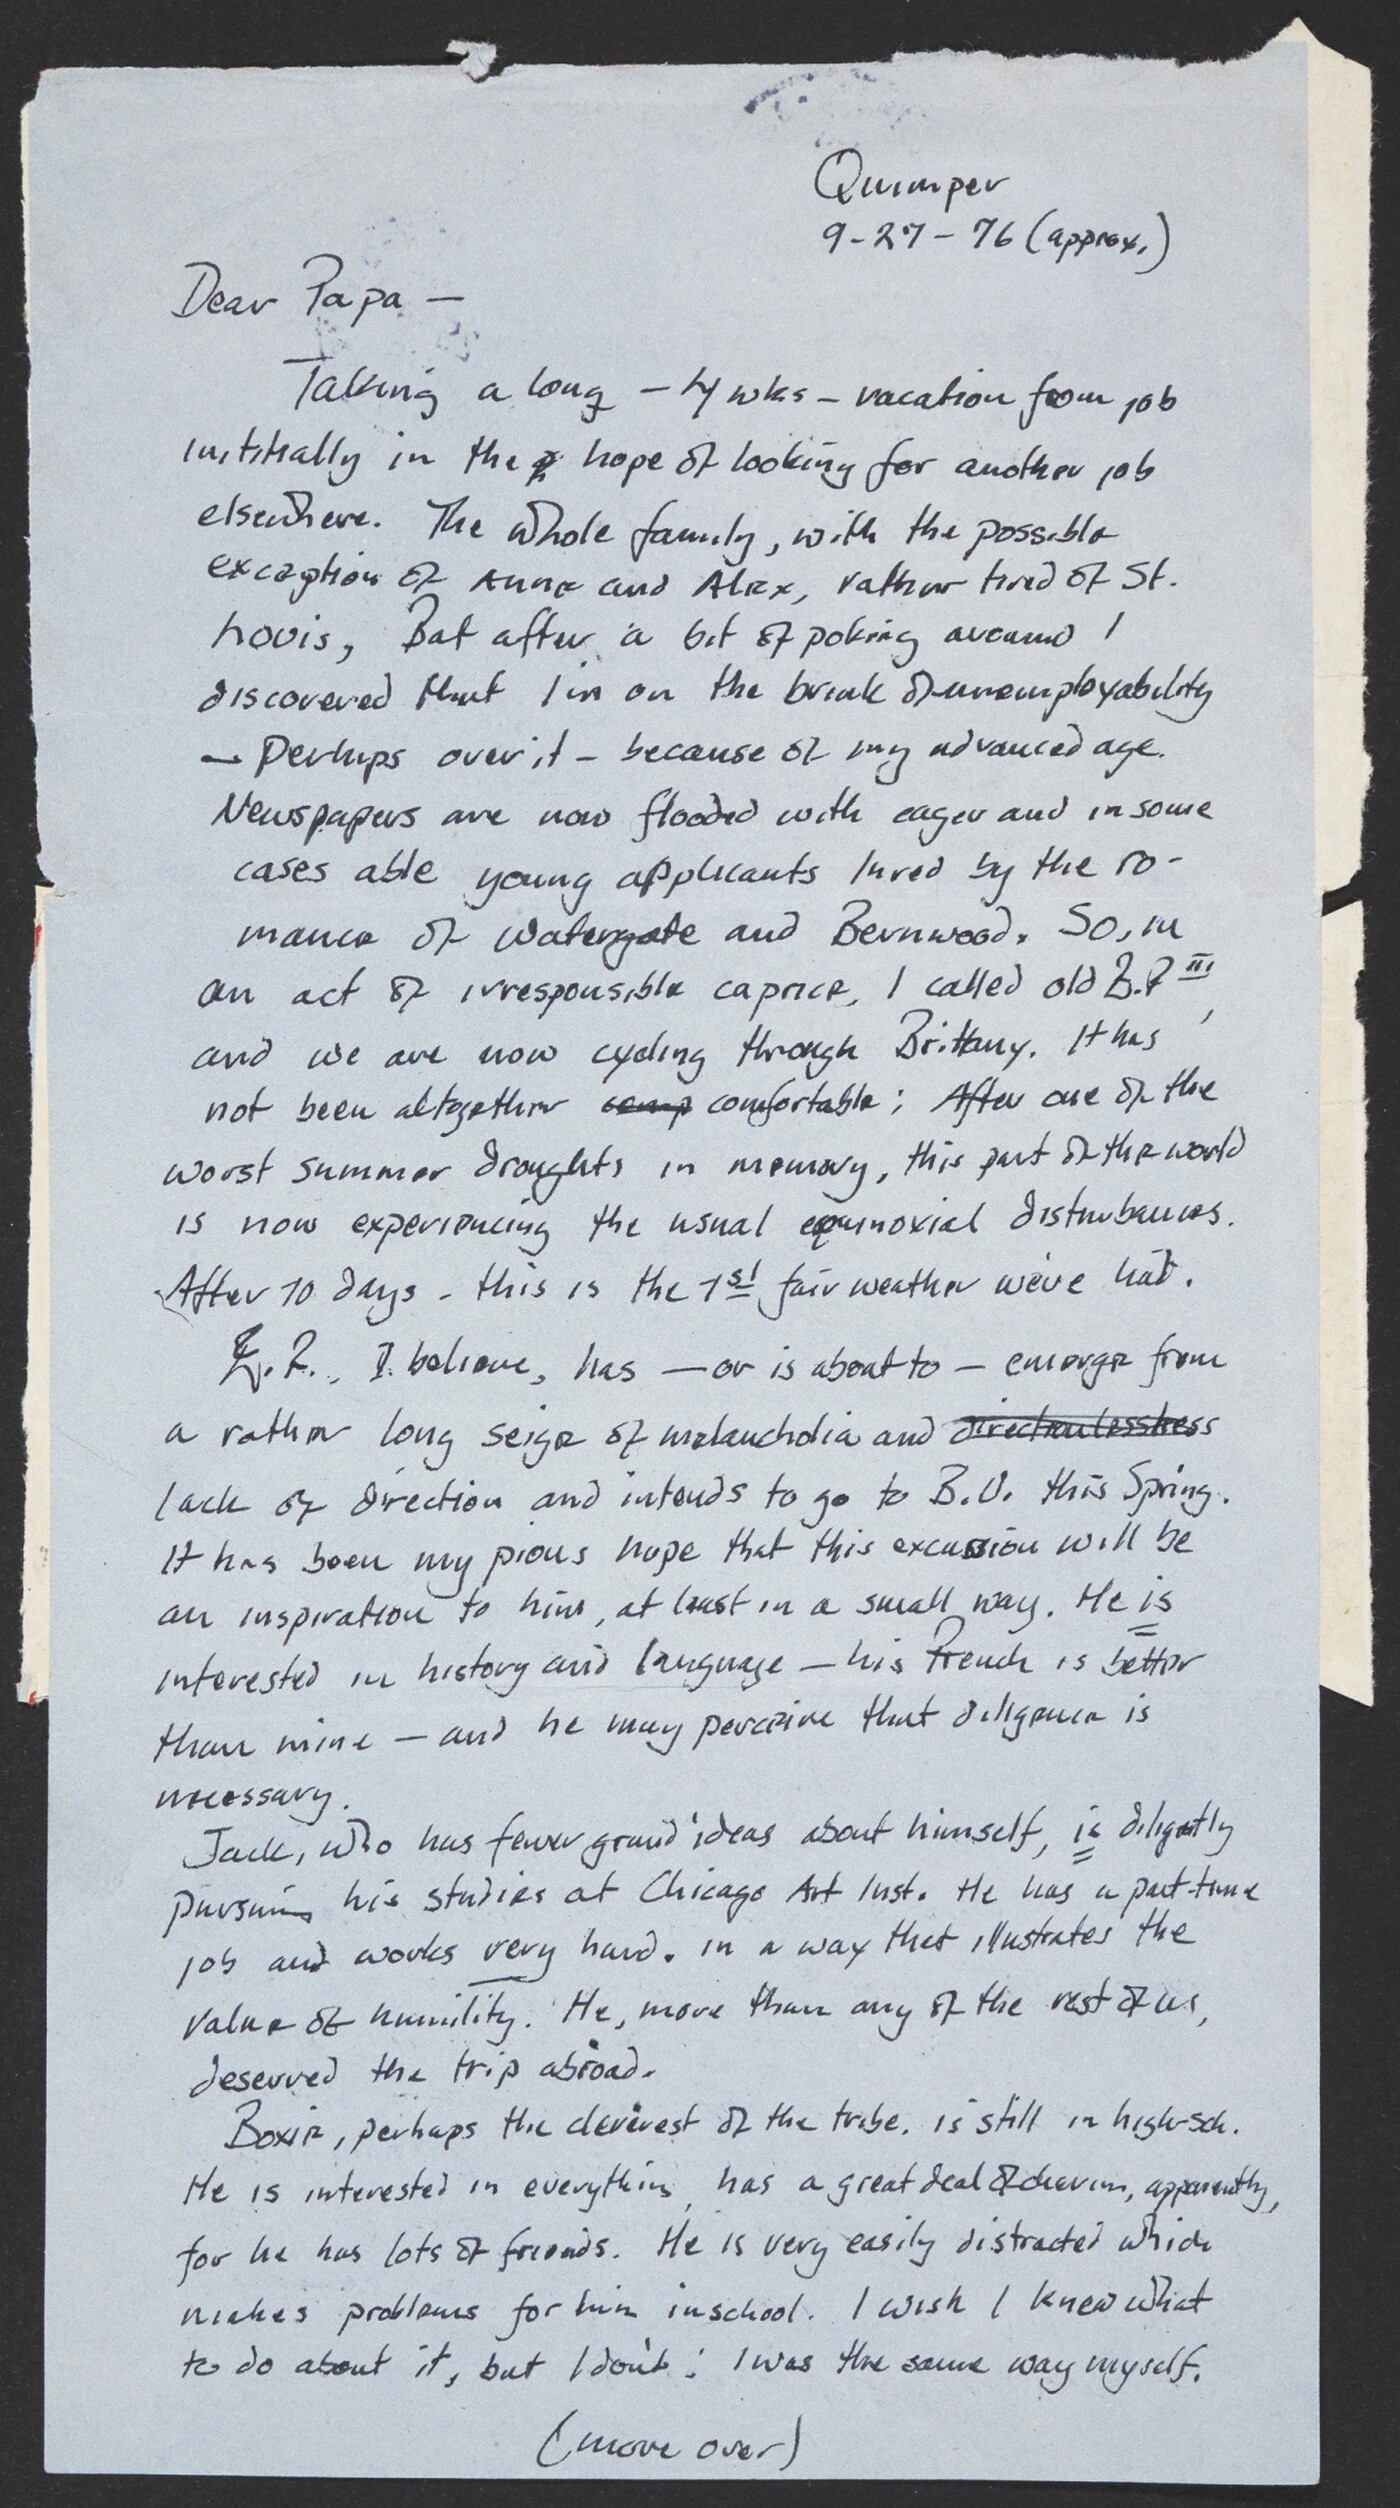 Quimper
9-27-76 (approx.)
Dear Papa —
Taking a long — 4 wks — vacation from job
initially in the hope of looking for another job
elsewhere. The whole family, with the possible
exception of Anne and Alex, rather tired of St.
Louis, But after a bit of poking around I
discovered that I'm on the brink of unemployability
— Perhaps over it — because of my advanced age.
Newspapers are now flooded with eager and in some
cases able young applicants lured by the ro-
mance of Watergate and Bernwood. So, in
an act of irresponsible caprice, I called old Z.P III,
and we are now cycling through Brittany. It has
not been altogether comp comfortable; After one of the
worst summer droughts in memory, this part of the world
is now experiencing the usual equinoxial disturbances.
After 10 days - this is the 1st fair weather we've had.
Z.P., I believe, has — or is about to — emerge from
a rather long seige of melancholia and directionlessness
lack of direction and intends to go to B.U. this Spring.
It has been my pious hope that this excursion will be
an inspiration to him, at least in a small way. He is
interested in history and language — his French is better
than mine — and he may perceive that diligence is
necessary.
Jack, who has fewer grand ideas about himself, is diligently
pursuing his studies at Chicago Art Inst. He has a part-time
job and works very hard. in a way that illustrates the
value of humility. He, more than any of the rest of us,
deserved the trip abroad.
Boxie, perhaps the cleverest of the tribe. is still in high-sch.
He is interested in everything, has a great deal of charm, apparently,
for he has lots of friends. He is very easily distracted which
makes problems for him in school. I wish I knew what
to do about it, but I don't; I was the same way myself.
(more over)